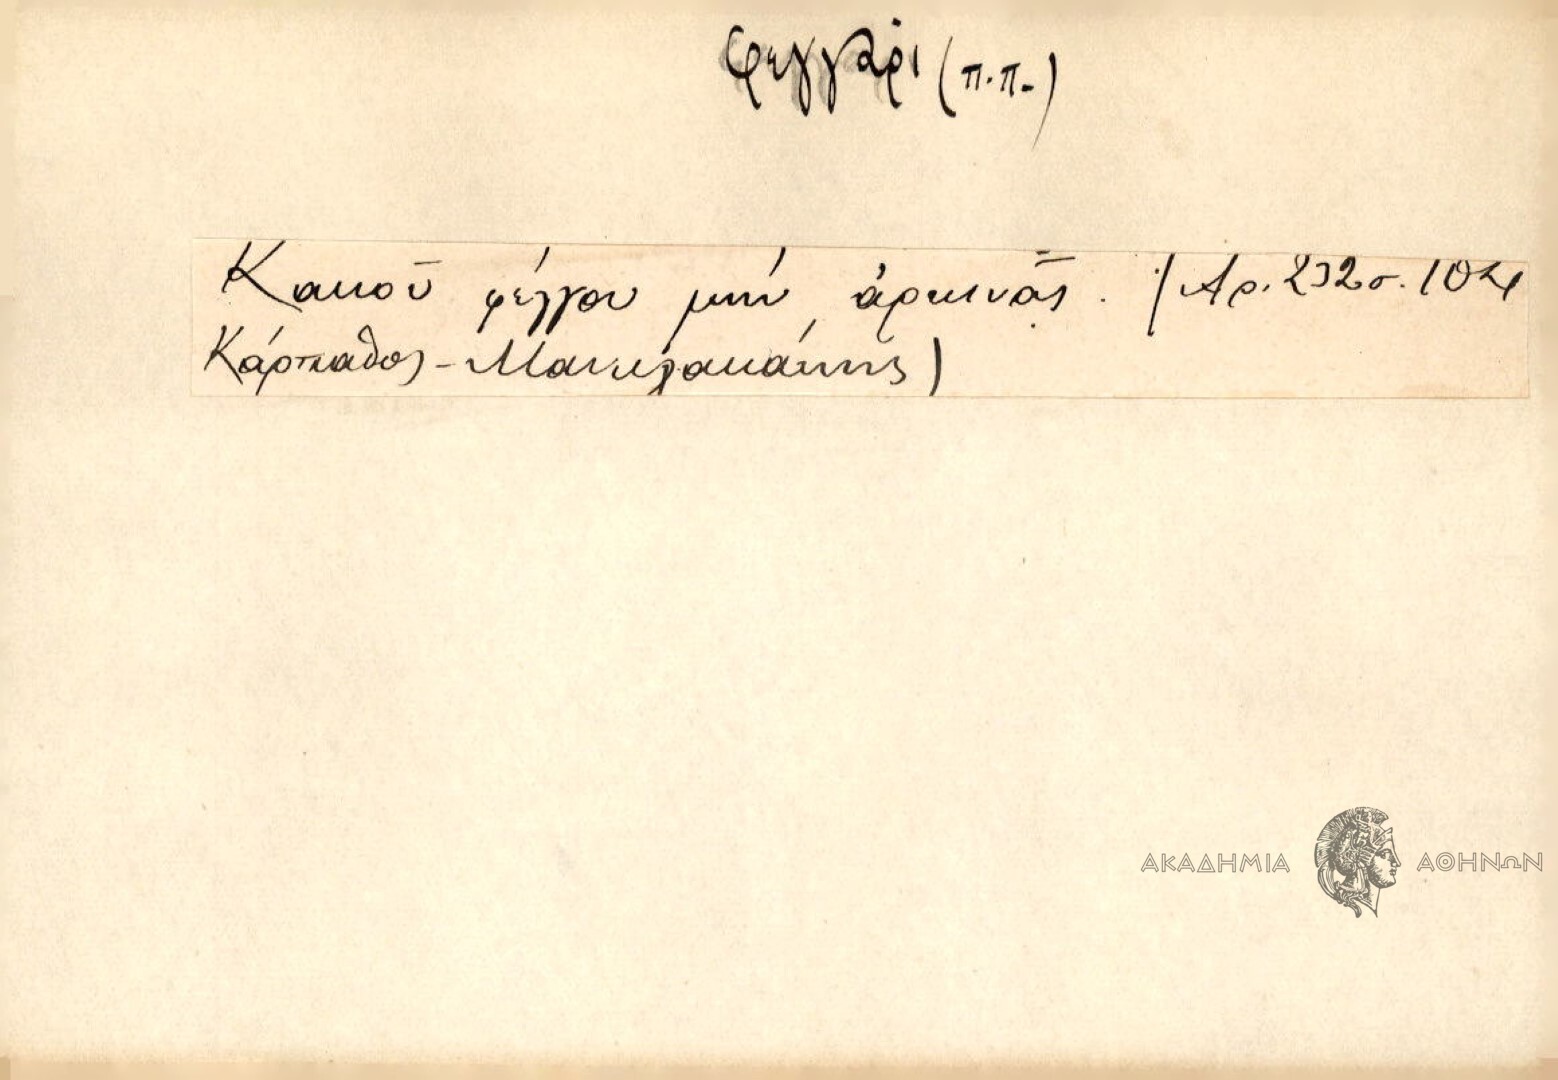 φεγγάρι (π.π.)
Κακοῦ φέγγου μήν ἀρκινᾷς. (Αρ. 232 σ. 104
Κάρπαθος - Μανωλακάκης)
ΑΚΑΔΗΜΙΑ ΑΘΗΝΩΝ